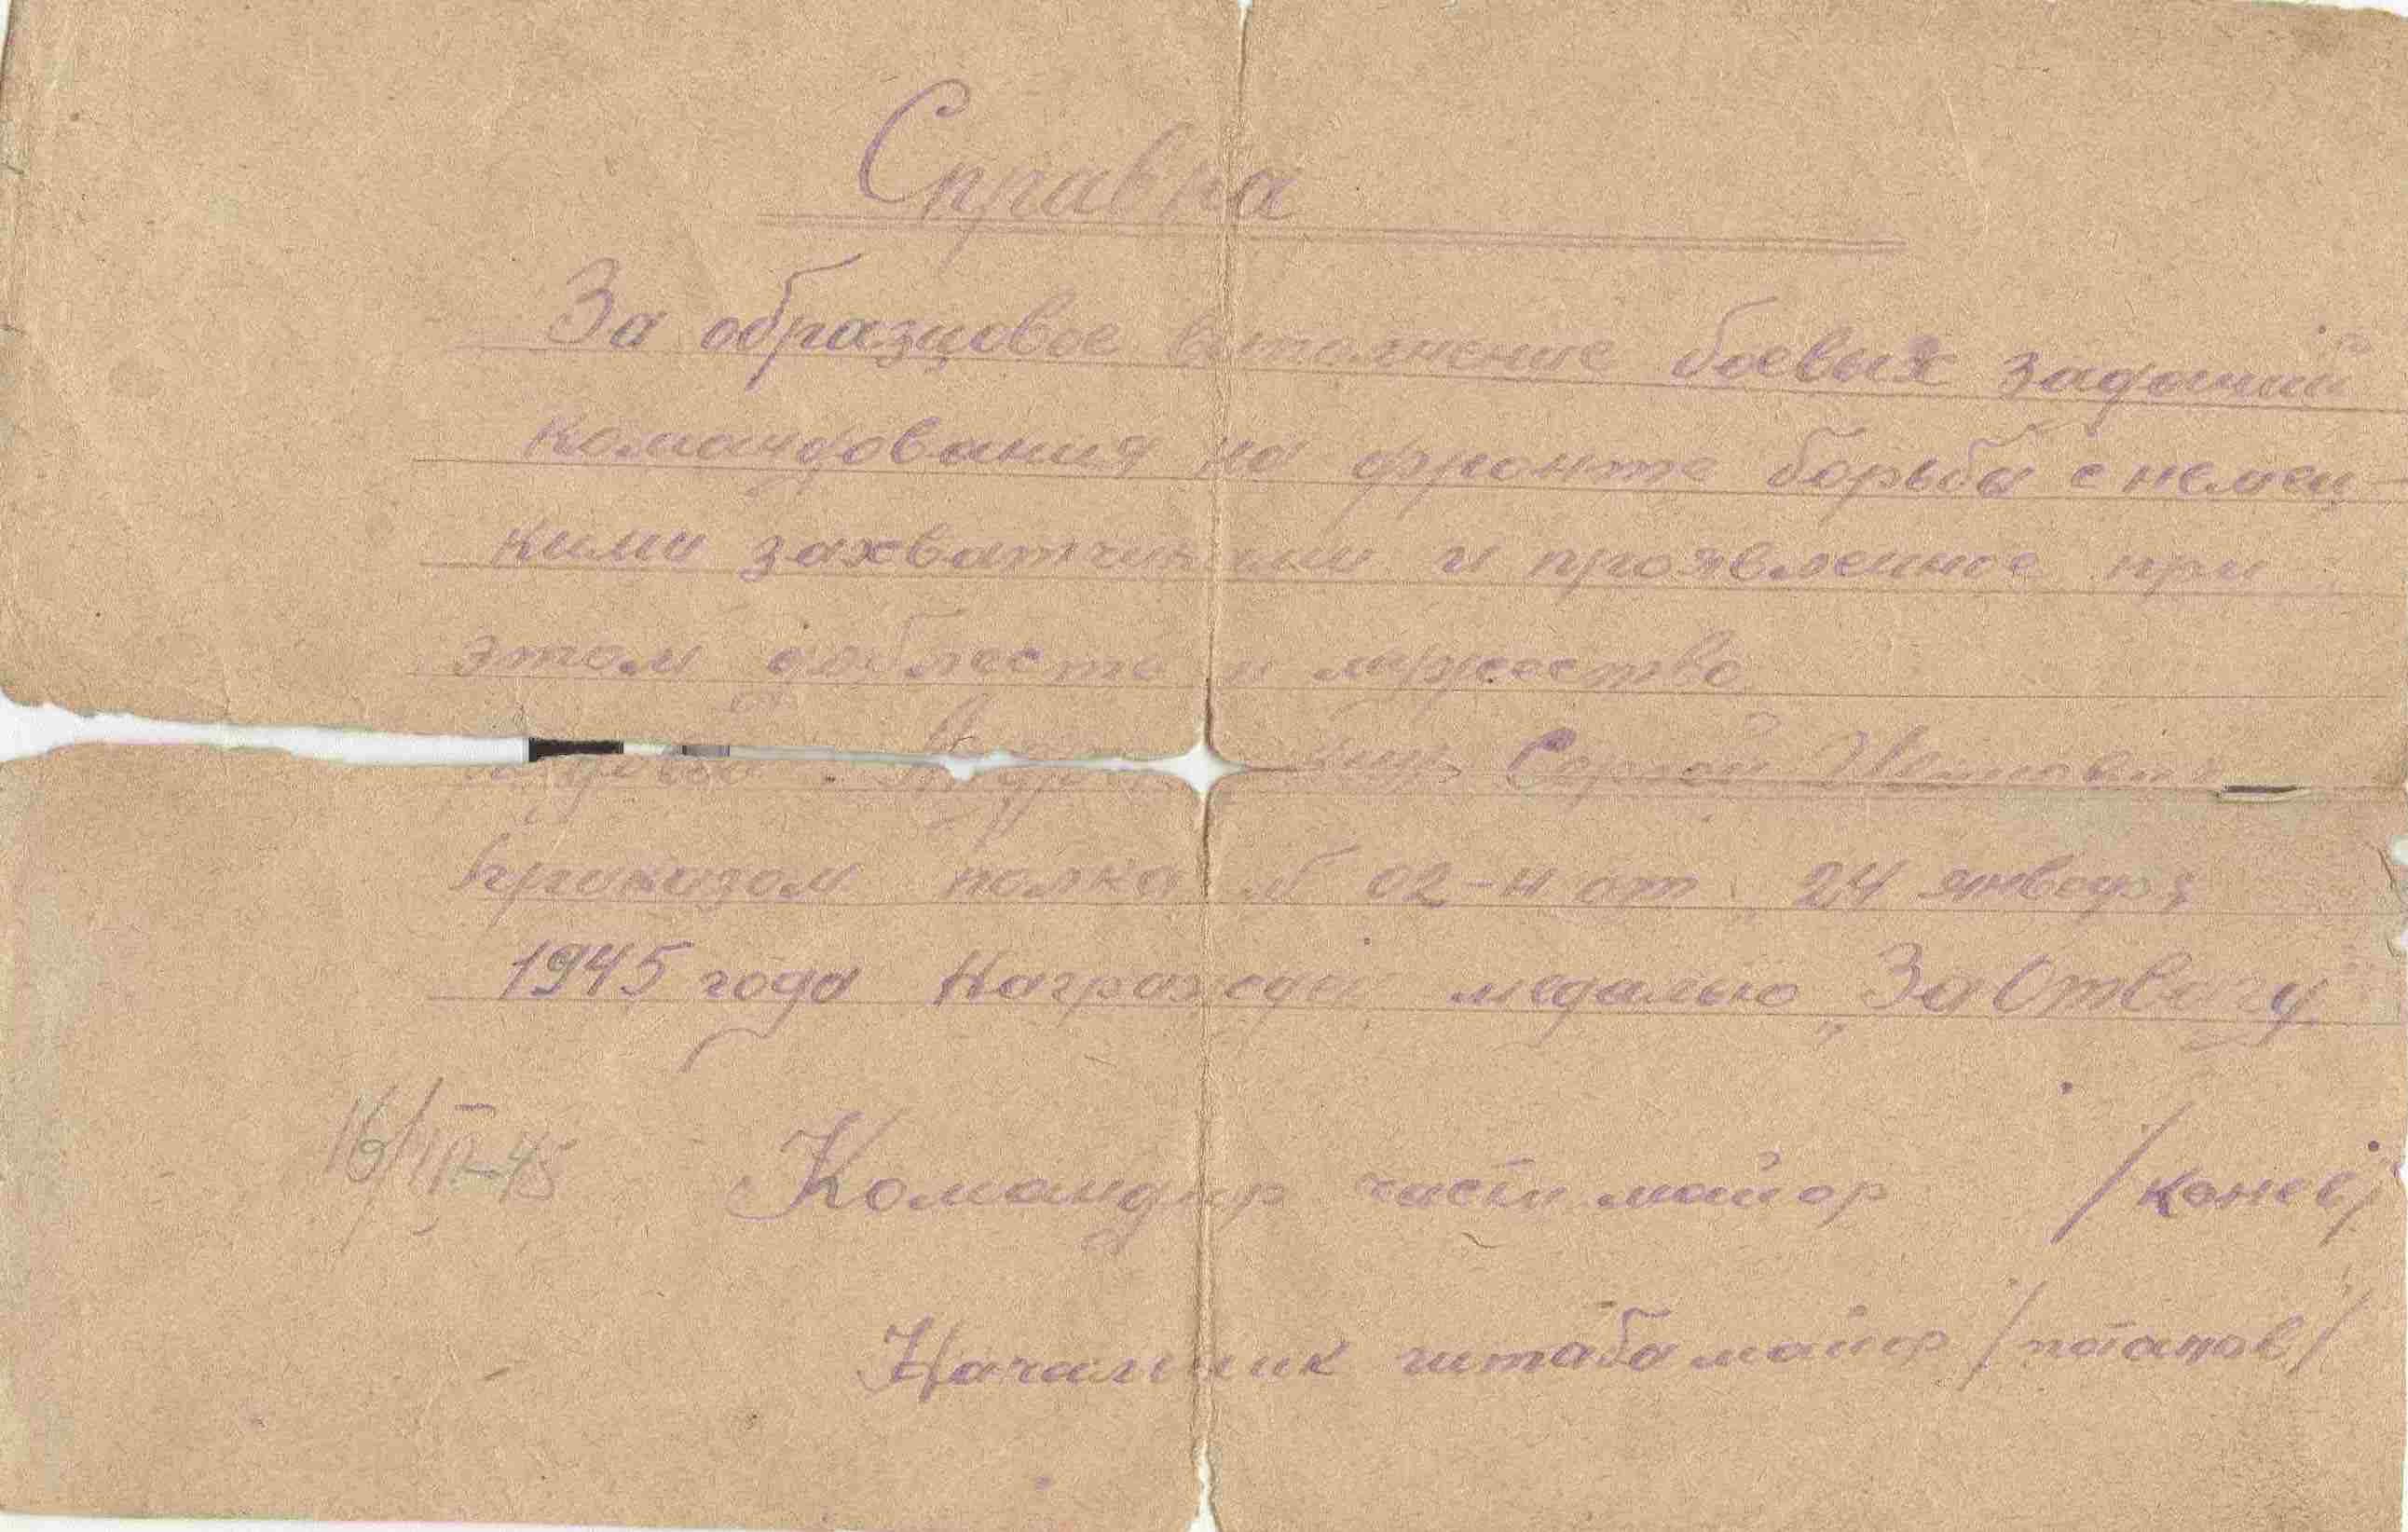 Справка
За образцовое выполнение боевых заданий
командования на фронте борьбы с немец-
кими захватчиками и проявленное при
этом доблесть и мужество
Сергей Иванович
приказом полка № 02-н от 24 января
1945 года Награжден медалью „За Отвагу"
Командир части майор /Конев/
Начальник штаба майор /потапов/